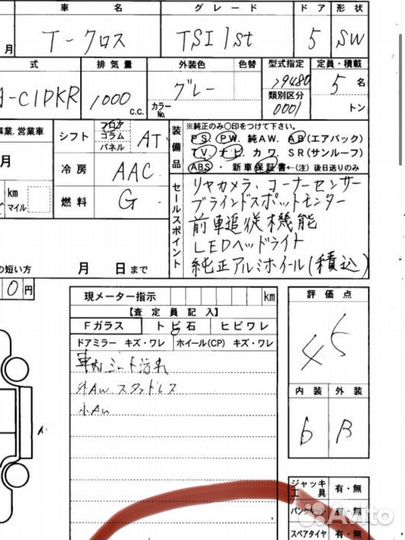 車名 グレード ドア 形状
月 T-クロス TSI 1st 5 SW
式 排気量 外装色 色替 型式指定 定員・積載
C1DKR 1000 c.c. グレー カラーNo. 19480 5名
類別区分 0001 トン
事業、営業車 シフト フロア コラム パネル AT
装備品 ※純正のみ○印をつけて下さい。
PS PW 純AW. AB(エアバッグ)
TV ナビ カワ SR(サンルーフ)
ABS ・新車保証書←(注)後日送りのみ
月 冷房 AAC
km マイル 燃料 G
セールスポイント
リヤカメラ、コーナーセンサー
ブラインドスポットモニター
前車追従機能
LEDヘッドライト
純正アルミホイール(積込)
の短い方 月 日まで
0円
現メーター指示 km
【査定員記入】
Fガラス トビ石 ヒビワレ
ドアミラー キズ・ワレ ホイール(CP) キズ・ワレ
車内シート汚れ
外AW スタッドレス
評価点
4.5
内装 外装
B
ジャッキ 工具 有・無
パンク 有・無
スペアタイヤ 有・無
Avito